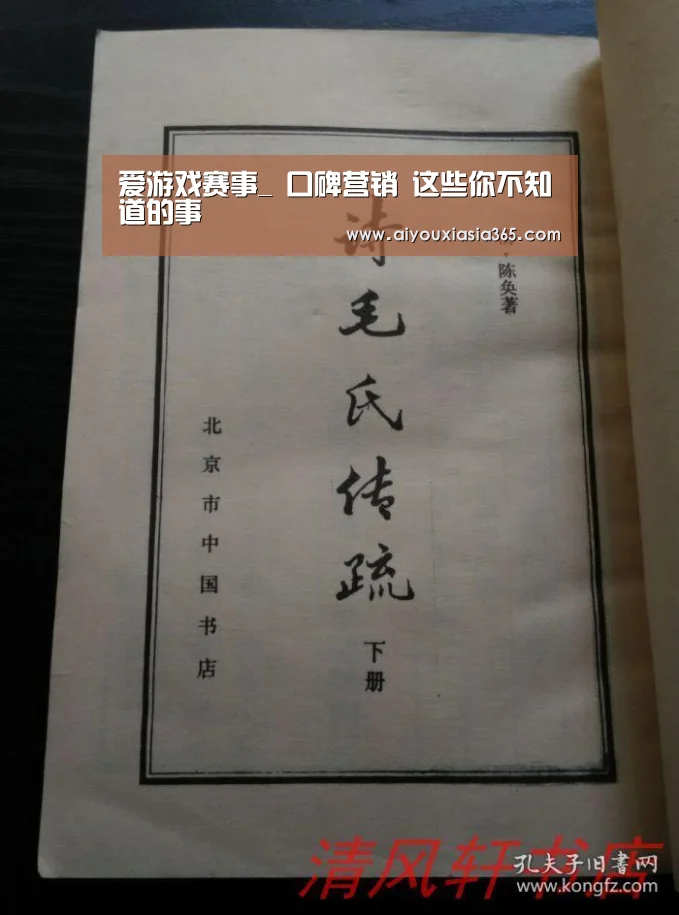 爱游戏赛事_ 口碑营销 这些你不知
道的事
www.aiyouxiasia365.com
陈奂著
诗毛氏传疏
下册
北京市中国书店
清风轩书店
孔夫子旧书网
www.kongfz.com